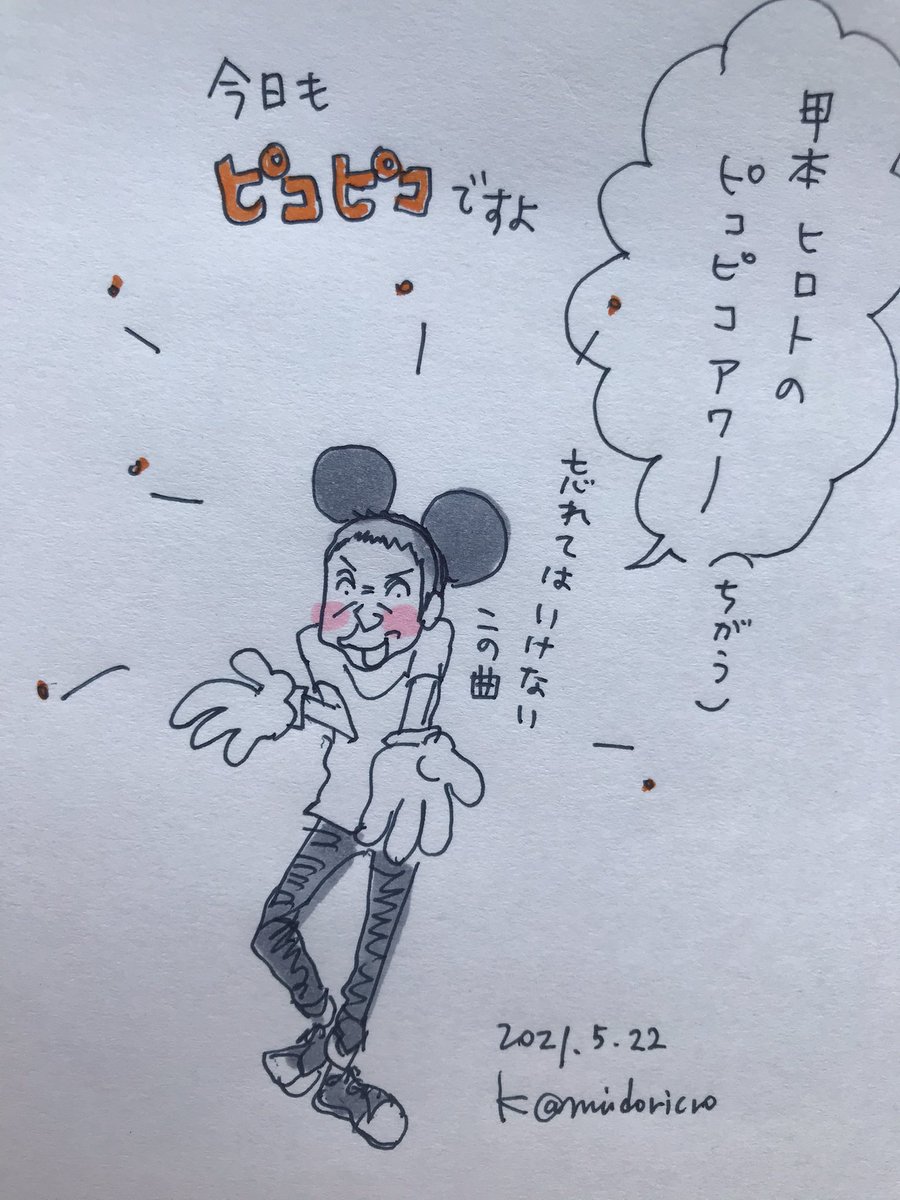 今日も
ピコピコですよ
甲本ヒロトの
ピコピコアワー
（ちがう）
忘れてはいけない
この曲
2021.5.22
K@midoricro